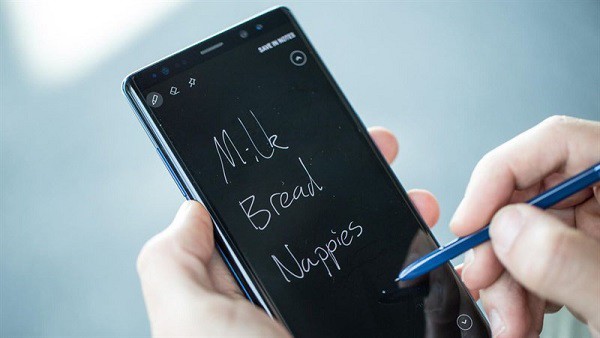 SAVE IN NOTES
Milk
Bread
Nappies